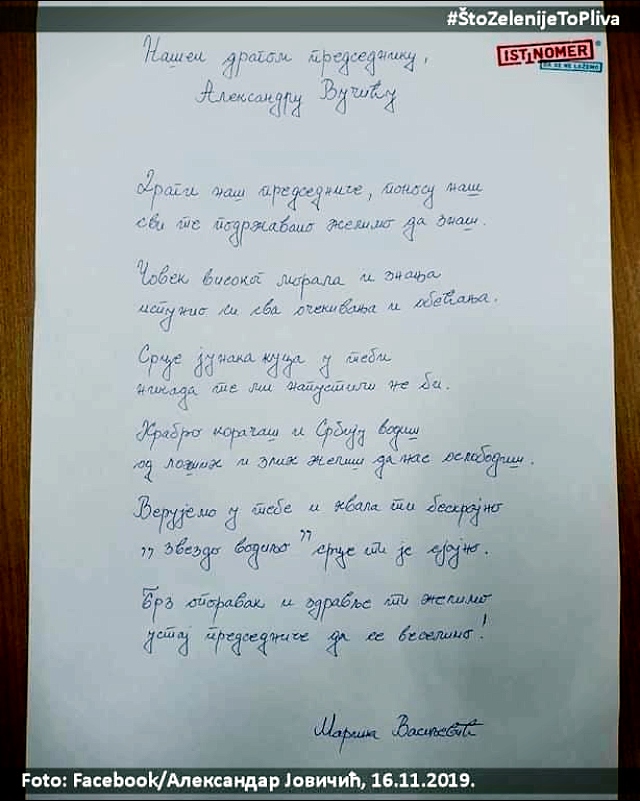 #ŠtoZelenijeToPliva
ISTINOMER
DA SE NE LAŽEMO
Нашем драгом председнику,
Александру Вучићу
Драги наш председниче, поносу наш
сви те подржавамо желимо да знаш.
Човек високог морала и знања
испунио си сва очекивања и обећања.
Срце јунака куца у теби
никада те ми напустили не би.
Храбро корачаш и Србију водиш
од лоших и злих желиш да нас ослободиш.
Верујемо у тебе и хвала ти бескрајно
„ звездо водиљо ” срце ти је сјајно.
Брз опоравак и здравље ти желимо
устај председниче да се веселимо!
Марина Васиљевић
Foto: Facebook/Александар Јовичић, 16.11.2019.